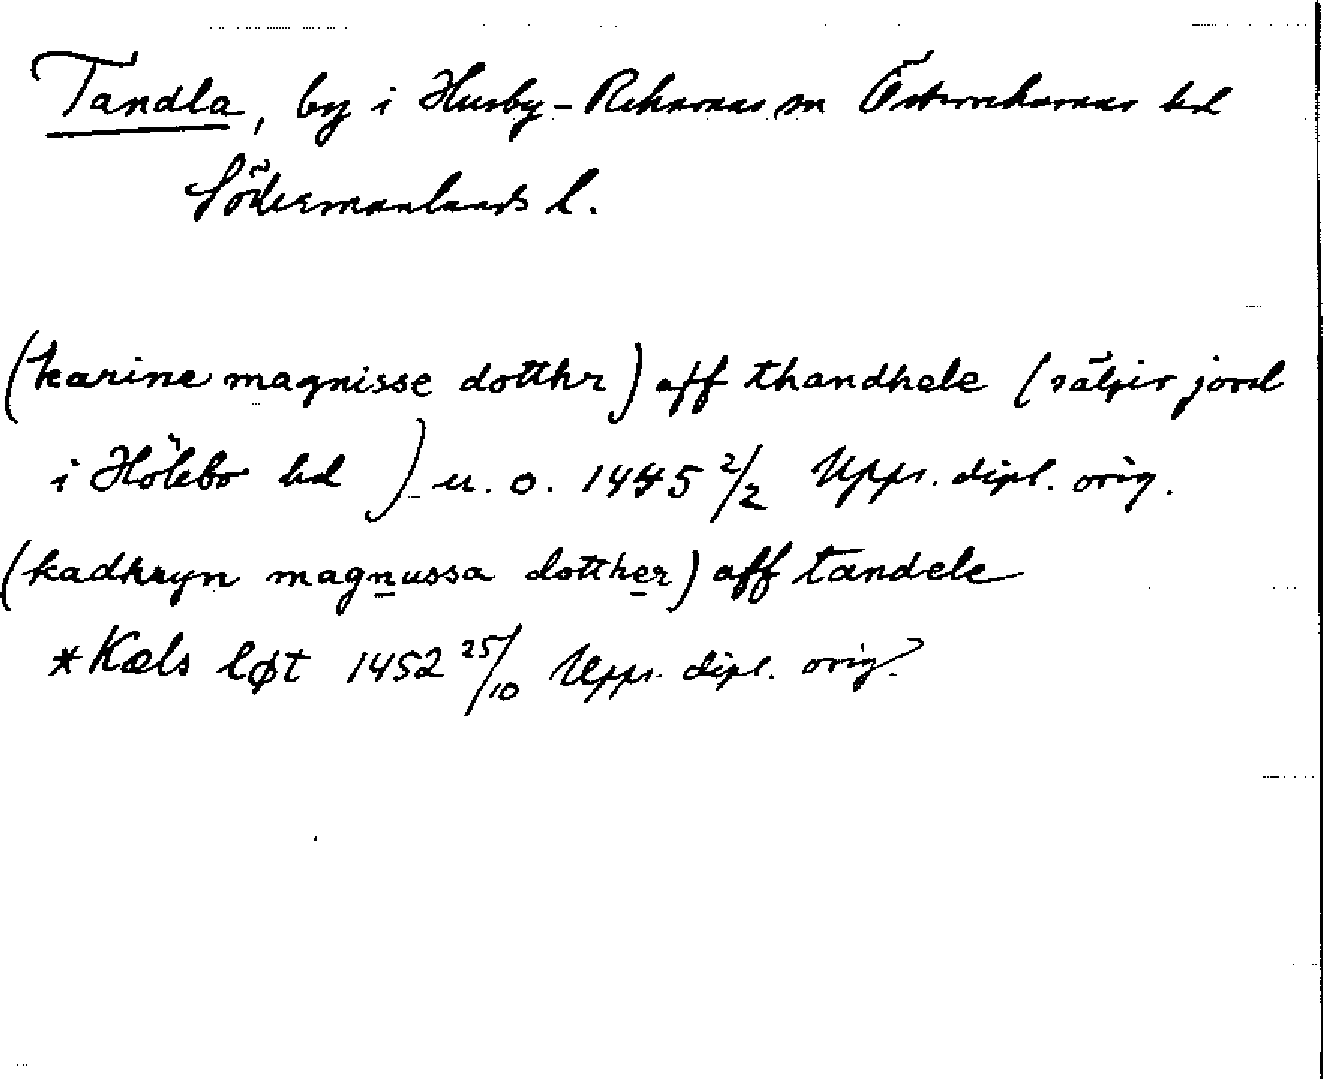 Tandla, by i Husby-Rekarnas sn Österrekarnas hd
Södermanlands l.
(karine magnisse dotthr) aff thandhele (säljer jord
i Hölebo hd) u. o. 1445 2/2 Upps. dipl. orig.
(kadhryn magnussa dotther) aff tandele
*Kæls løt 1452 25/10 Upps. dipl. orig.